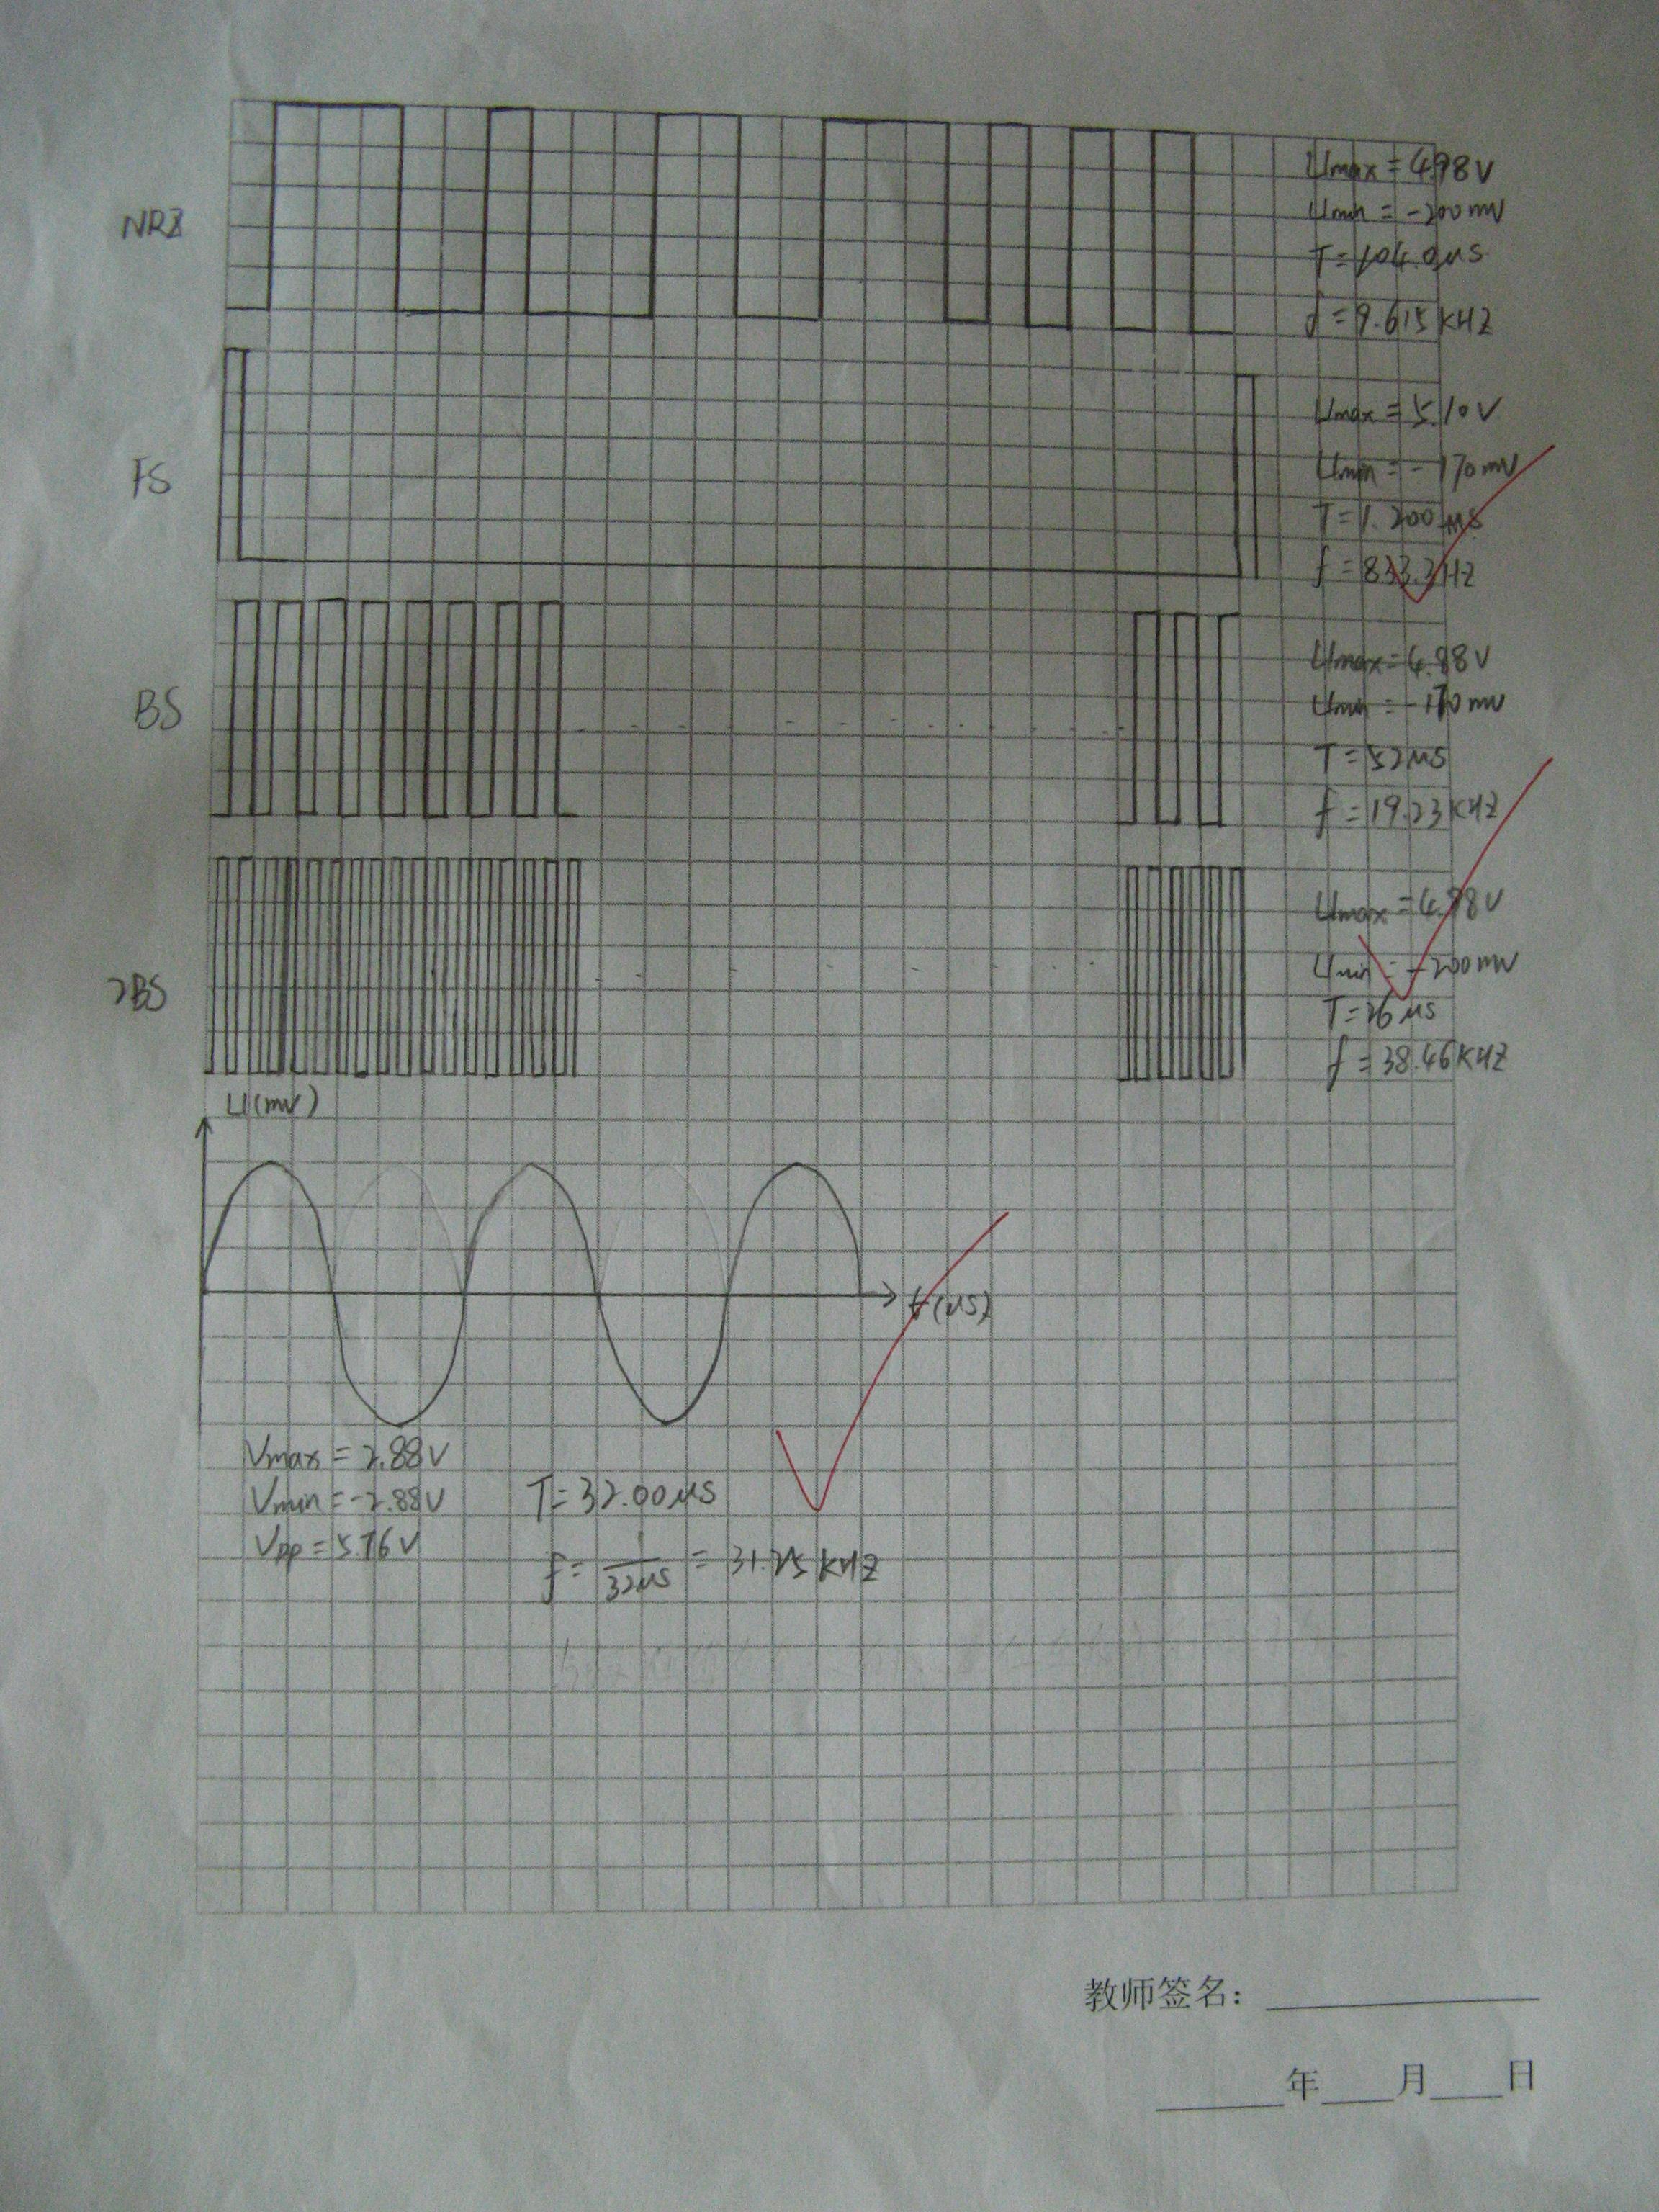 NRZ
Umax = 4.98V
Umin = -200mV
T = 104.0μs
f = 9.615KHZ
FS
Umax = 5.10V
Umin = -170mV
T = 1.200ms
f = 833.3HZ
BS
Umax = 4.88V
Umin = -170mV
T = 52μs
f = 19.23KHZ
2BS
Umax = 4.98V
Umin = -200mV
T = 26μs
f = 38.46KHZ
U(mV)
t(μs)
Vmax = 2.88V
Vmin = -2.88V
Vpp = 5.76V
T = 32.00μs
f = 1/32μs = 31.25KHZ
教师签名:
年 月 日